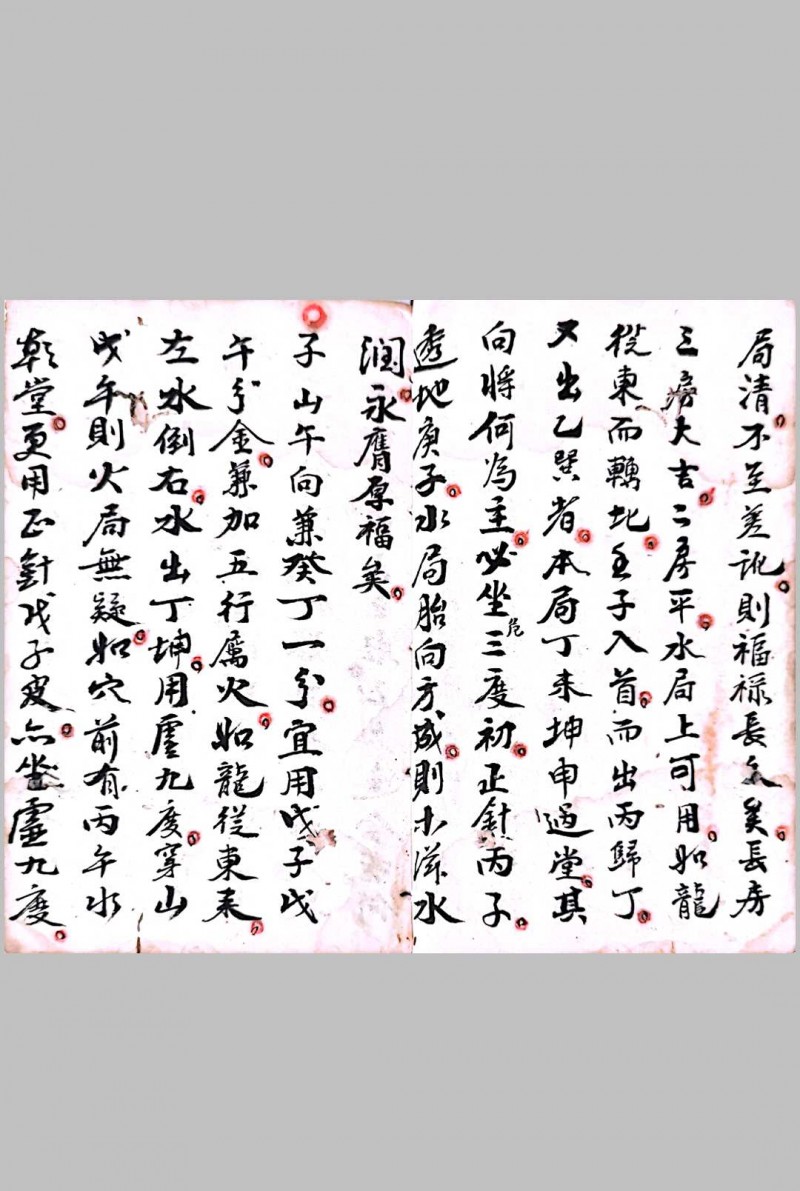 局清不至差訛則福祿長久矣長房
三房大吉二房平水局上可用如龍
從東而轉北壬子入首而出丙歸丁
又出乙巽者本局丁未坤申過堂其
向將何為主必坐危三度初正針丙子
透地庚子水局胎向方成則木滋水
潤永膺厚福矣
子山午向兼癸丁一分宜用戊子戊
午分金兼加五行屬火如龍從東來
左水倒右水出丁坤用虛九度穿山
戊午則火局無疑如穴前有丙午水
朝堂更用正針戊子皮亦坐虛九度